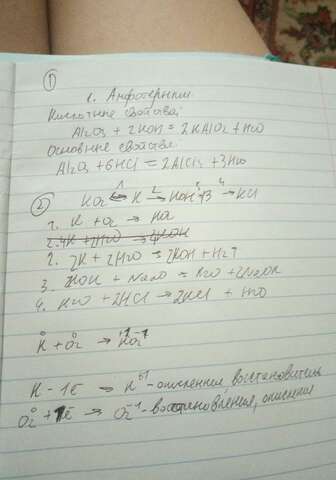 ①
1. Амфотерным
Кислотные свойства:
Al2O3 + 2KOH = 2KAlO2 + H2O
Основные свойства
Al2O3 + 6HCl = 2AlCl3 + 3H2O
②
KO2 ← K → KOH → → KCl
1 2 3 4
1. K + O2 → KO2
2. 2K + 2H2O = 2KOH + H2↑
3. 2KOH + Na2O = K2O + 2NaOH
4. K2O + 2HCl → 2KCl + H2O
K + O2 → KO2
K - 1ē → K+1 - окисление, восстановитель
O2 + 1ē → O2-1 - восстановление, окислитель